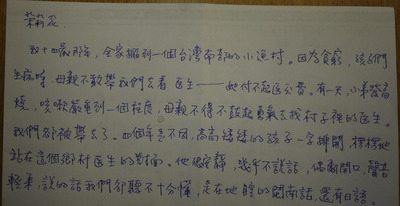 茉莉花
我十四歲那年,全家搬到一個台灣南部的小漁村。因為貧窮,孩子們
生病時,母親不敢帶我們去看医生——她付不起医药費。有一天,小弟發高
燒,咳嗽嚴重到一個程度,母親不得不鼓起勇氣去找村子裡的医生。
我們都被帶去了。四個年齡不同,高高矮矮的孩子一字排開,楞楞地
站在這個鄉村医生的前面。他很安靜,幾乎不説話,偶爾開口,聲音
輕柔,説的話我們卻聽不十分懂,是在地腔的閩南話,還有日語。